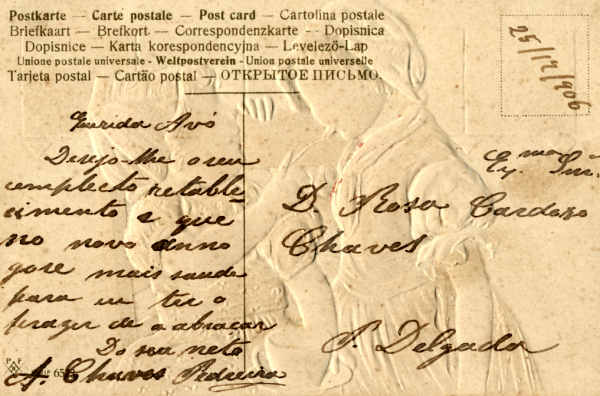 Postkarte – Carte postale – Post card – Cartolina postale
Briefkaart – Brefkort – Correspondenzkarte – Dopisnica
Dopisnice – Karta korespondencyjna – Levelező-Lap
Unione postale universale - Weltpostverein - Union postale universelle
Tarjeta postal – Cartão postal – ОТКРЫТОЕ ПИСЬМО.
25/12/906
Querida Avó
Desejo-lhe o seu
complecto restable-
cimento e que
no novo anno
gose mais saude
para eu ter o
prazer de a abraçar
Do seu neto
A. Chaves Pedreira
Exma Snra
D. Rosa Cardozo
Chaves
P. Delgada